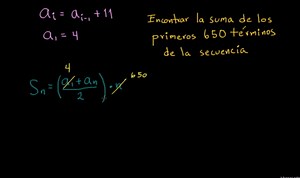 aᵢ = aᵢ₋₁ + 11
a₁ = 4
Encontrar la suma de los
primeros 650 términos
de la secuencia
4
650
Sₙ = (a₁ + aₙ / 2) · n